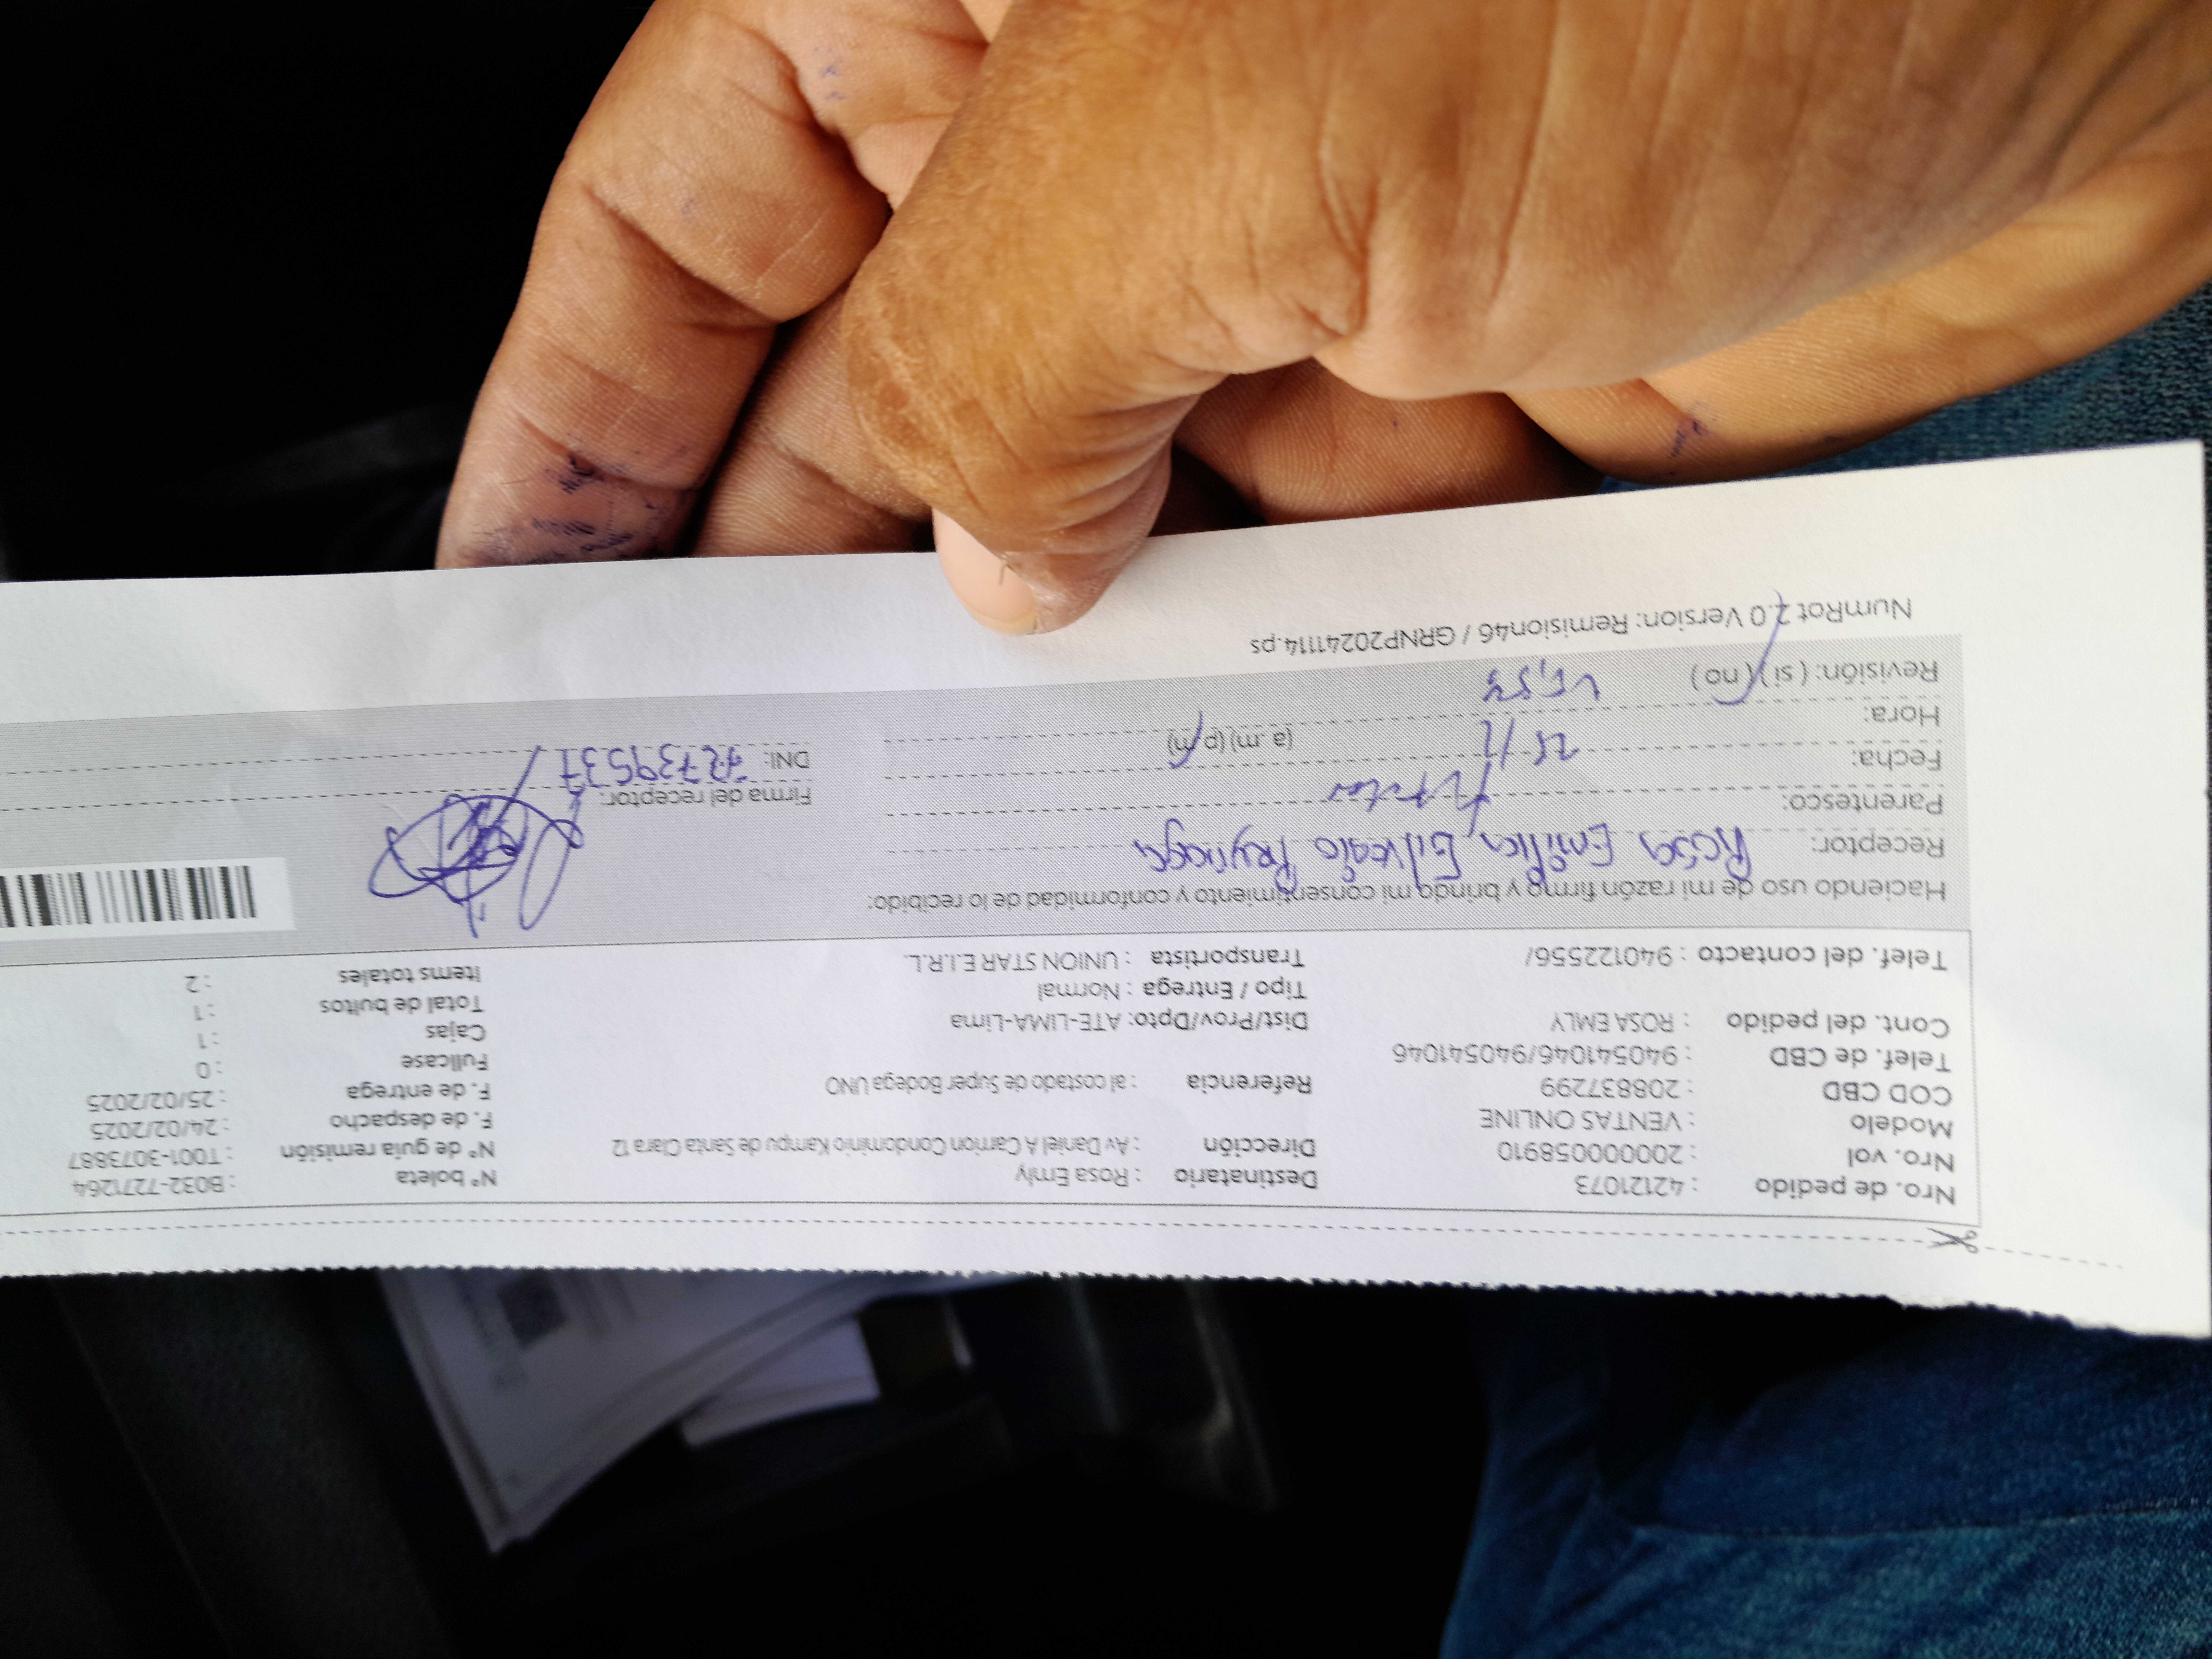 Nro. de pedido : 42121073 Destinatario : Rosa Emly Nº boleta : B032-7271264
Nro. vol : 20000058910 Dirección : Av Daniel A Carrion Condominio Kampu de Santa Clara 12 Nº de guía remisión : T001-3073887
Modelo : VENTAS ONLINE F. de despacho : 24/02/2025
COD CBD : 208837299 Referencia : al costado de Super Bodega UNO F. de entrega : 25/02/2025
Telef. de CBD : 940541046/940541046 Fullcase : 0
Cont. del pedido : ROSA EMLY Dist/Prov/Dpto: ATE-LIMA-Lima Cajas : 1
Tipo / Entrega : Normal Total de bultos : 1
Telef. del contacto : 940122556/ Transportista : UNION STAR E.I.R.L. Items totales : 2
Haciendo uso de mi razón firmo y brindo mi consentimiento y conformidad de lo recibido:
Receptor: Rosa Emilia
Parentesco: Firma del receptor:
Fecha: 25/2 (a.m) (p.m) DNI: 72739537
Hora:
Revisión: (si) (no)
NumRot 2.0 Version: Remision46 / GRNP20241114.ps